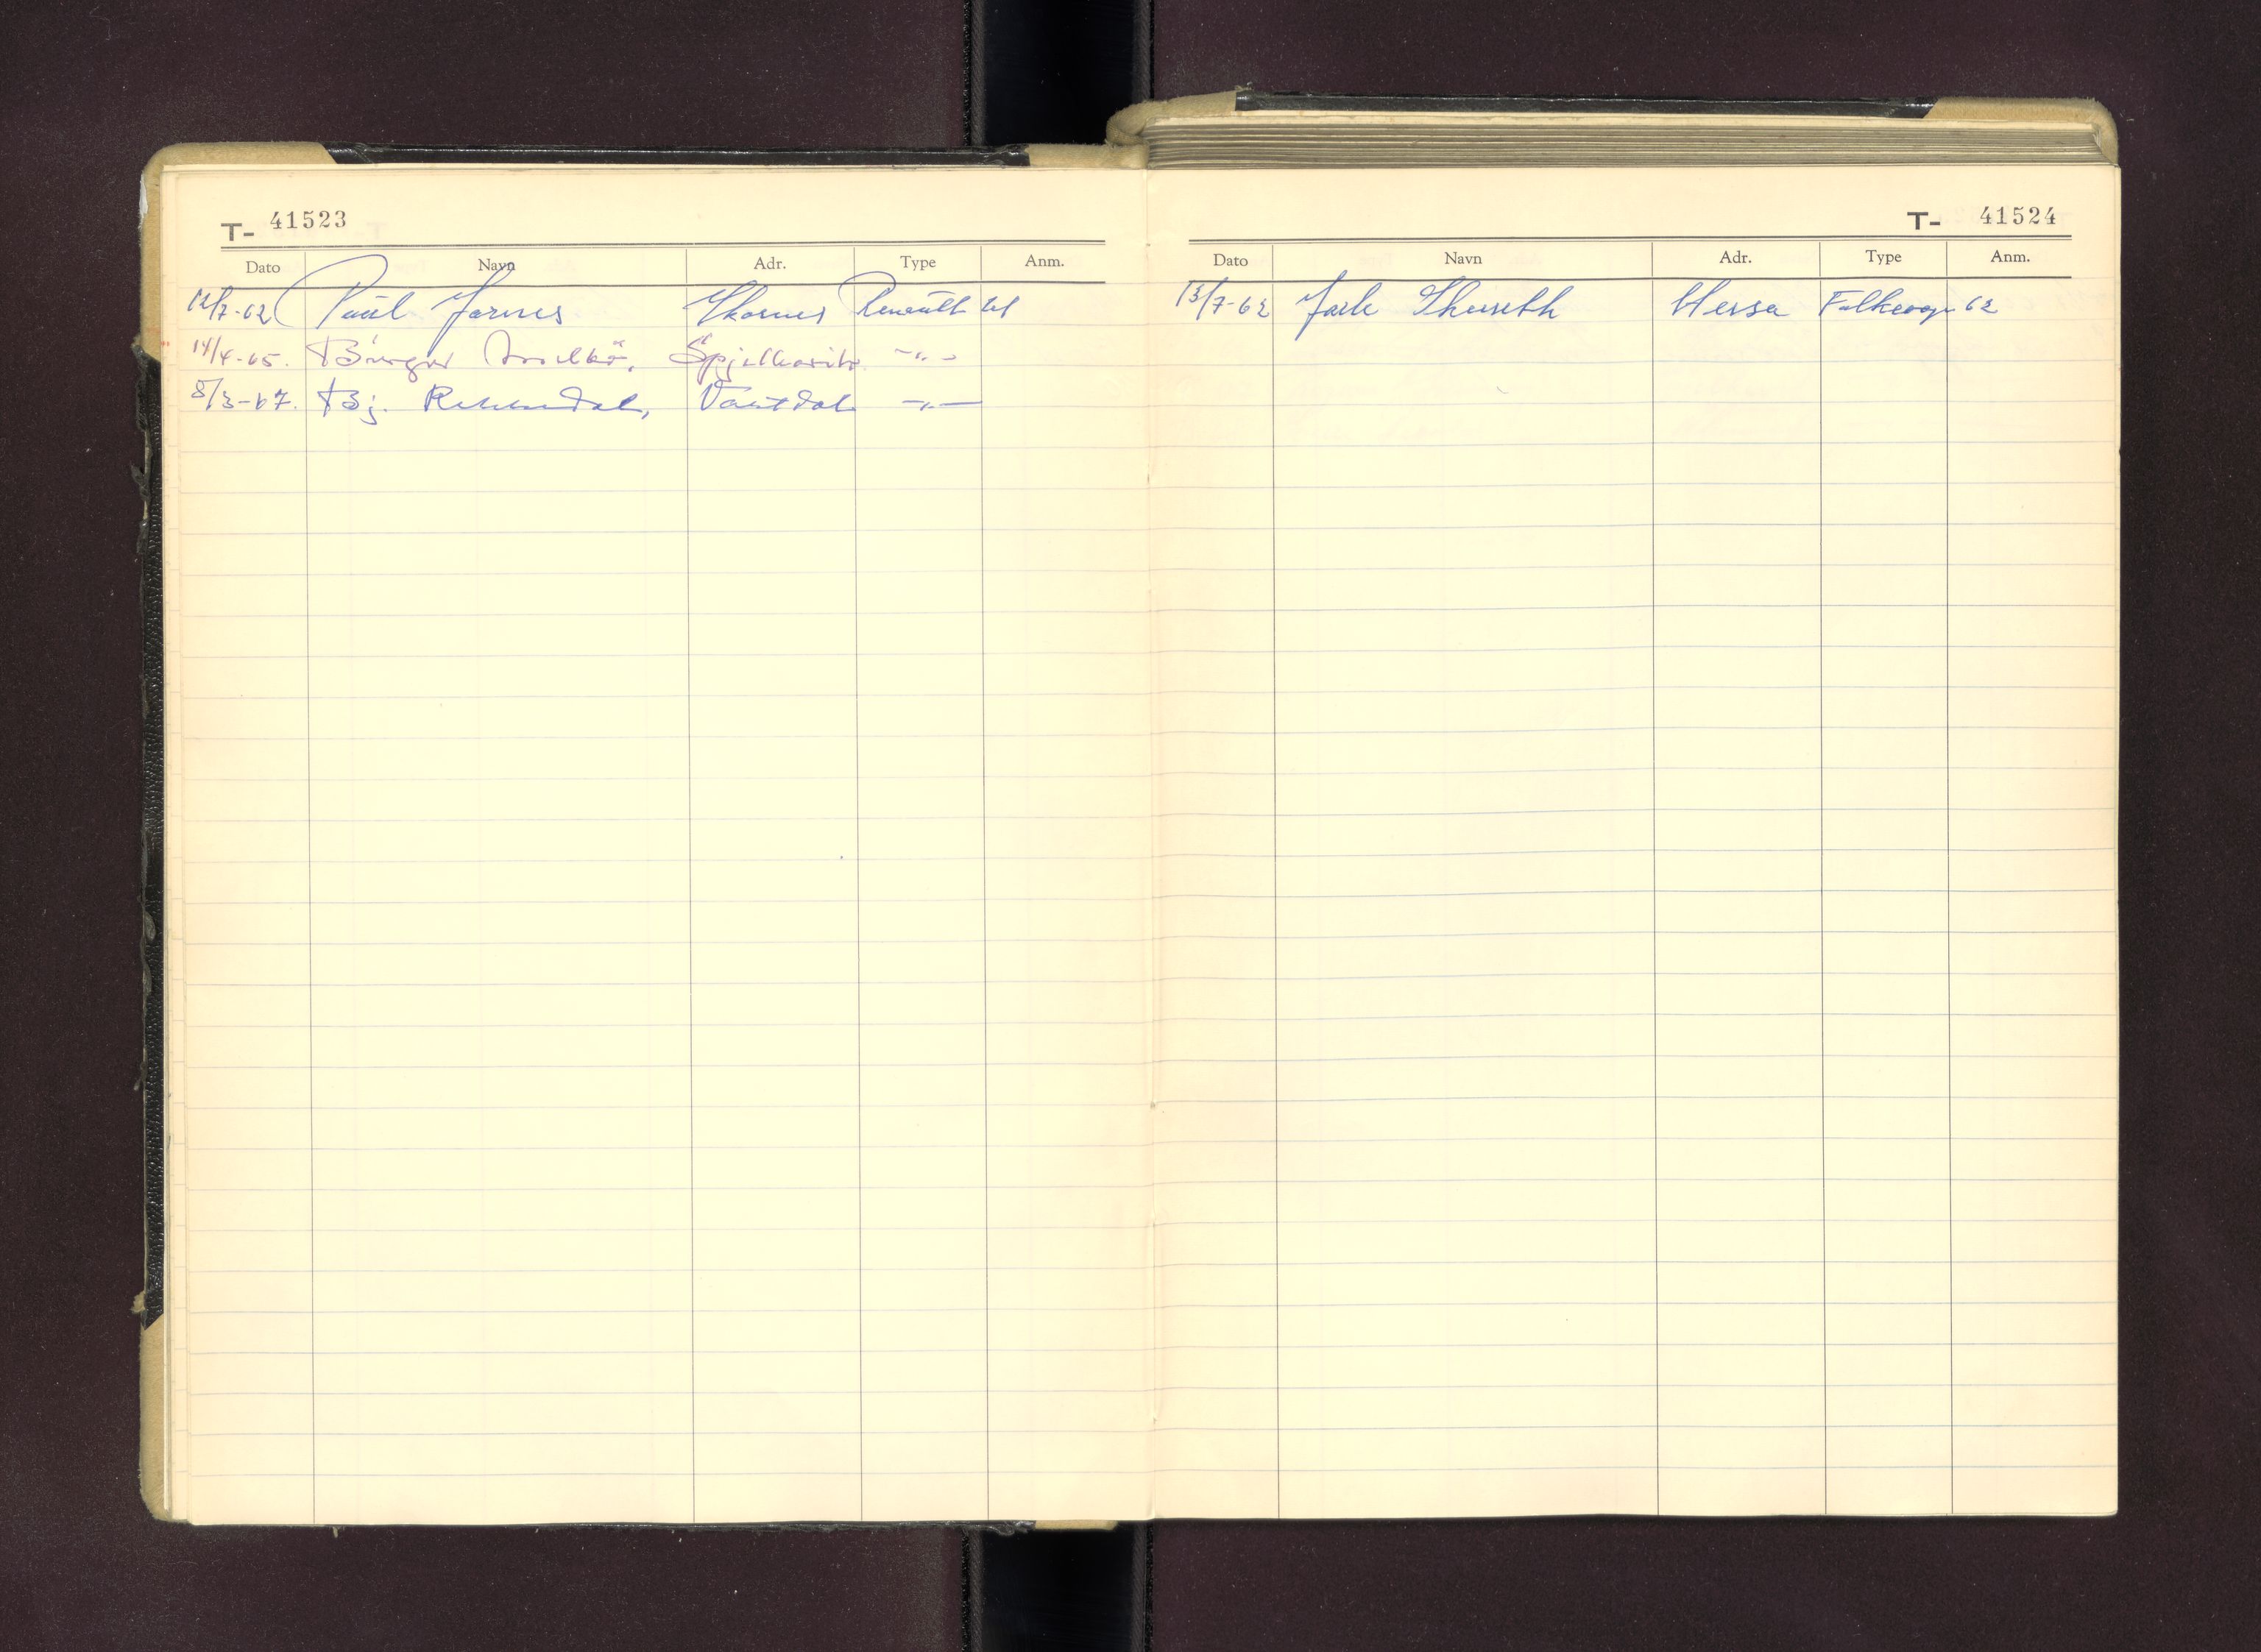 T- 41523
Dato Navn Adr. Type Anm.
12/7-62 Paul Renault 61
14/4-65. Birger Spjelkavik -"-
8/3-67. Bj. Vartdal -"-
T- 41524
Dato Navn Adr. Type Anm.
13/7-62 Jarle Hessa Folkevogn 62